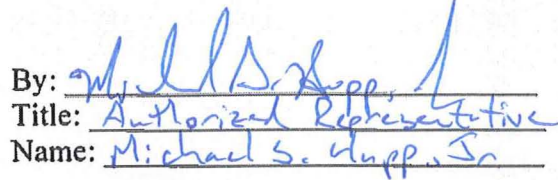 By: Michael S. Hupp, Jr
Title: Authorized Representative
Name: Michael S. Hupp, Jr